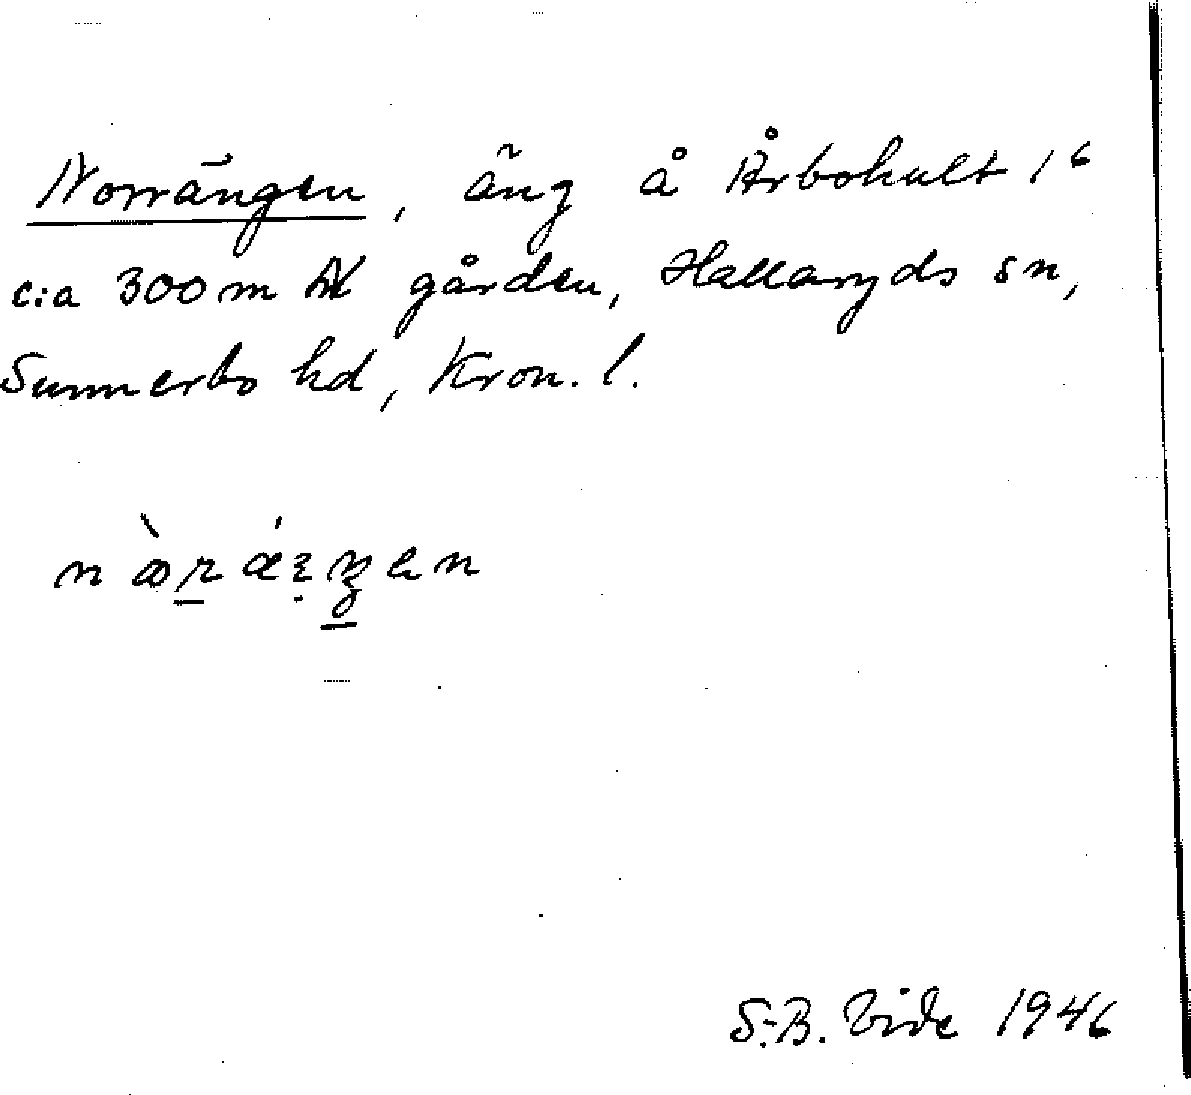 Norrängen, äng å Årbohult 1⁶
c:a 300 m N gården, Hallaryds sn,
Sunnerbo hd, Kron. l.
S.-B. Vide 1946